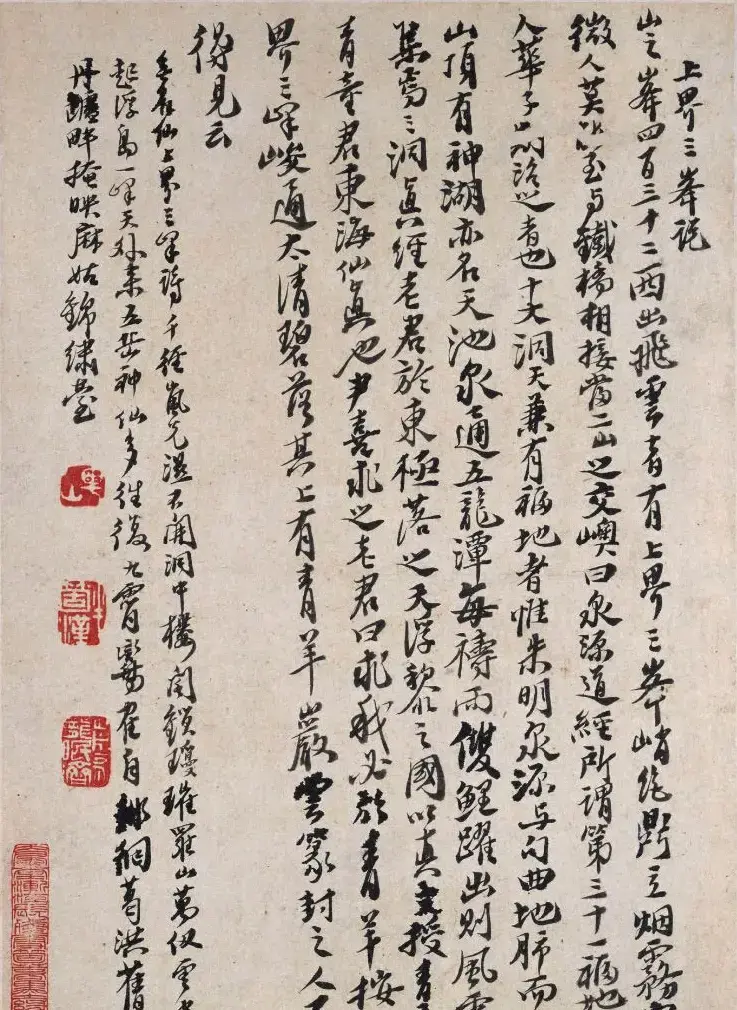 上界三峯說
山之峯四百三十二西出飛雲者有上界三峯峭絕鼎立烟霧
微人莫以至与鐵橋相接當二山之交嶼曰泉源道經所謂第三十一福地
人華子所治之者也十大洞天兼有福地者惟朱明泉源与句曲地肺而
山頂有神湖亦名天池泉通五龍潭每禱雨雙鯉躍出則風
集焉三洞真經老君於東極落之天浮黎之國以真文授青
青童君東海仙真也尹喜求之老君曰求我必於青羊按
界三峯峻通太清碧落其上有青羊巖雲篆封之人
得見云
仙上界三峯詩千徑嵐光濕不開洞中樓閣鎖瓊瑰羅山萬仞雲
起浮島一峰天外來五岳神仙多往復九霄鸞隺自葛洪舊
丹竈畔掩映麻姑錦繡臺